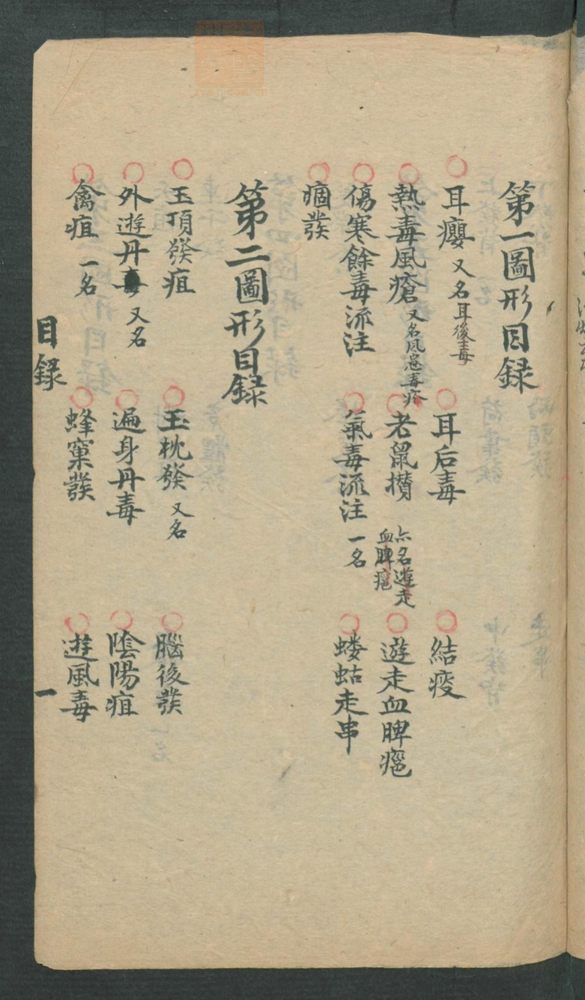 第一圖形目録
耳癭 又名耳後毒 耳后毒 結疫
熱毒風瘡 又名風惡毒瘡 老鼠攢 亦名遊走血脾癦 遊走血脾癦
傷寒餘毒流注 氣毒流注 一名 蝼蛄走串
痼發
第二圖形目録
玉頂發疽 玉枕發 又名 腦後發
外遊丹毒 又名 遍身丹毒 陰陽疽
禽疽 一名 蜂窠發 遊風毒
目録 一